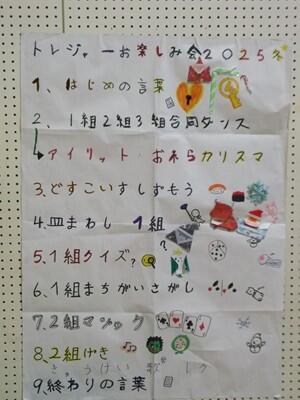 トレジャーお楽しみ会2025冬
1、はじめの言葉
2、1組2組3組合同ダンス
↳アイリット・おれらカリスマ
3、どすこいすしずもう
4、皿まわし 1組
5、1組クイズ?
6、1組まちがいさがし
7、2組マジック
8、2組げき
きゅうけい 歌 レク
9、終わりの言葉